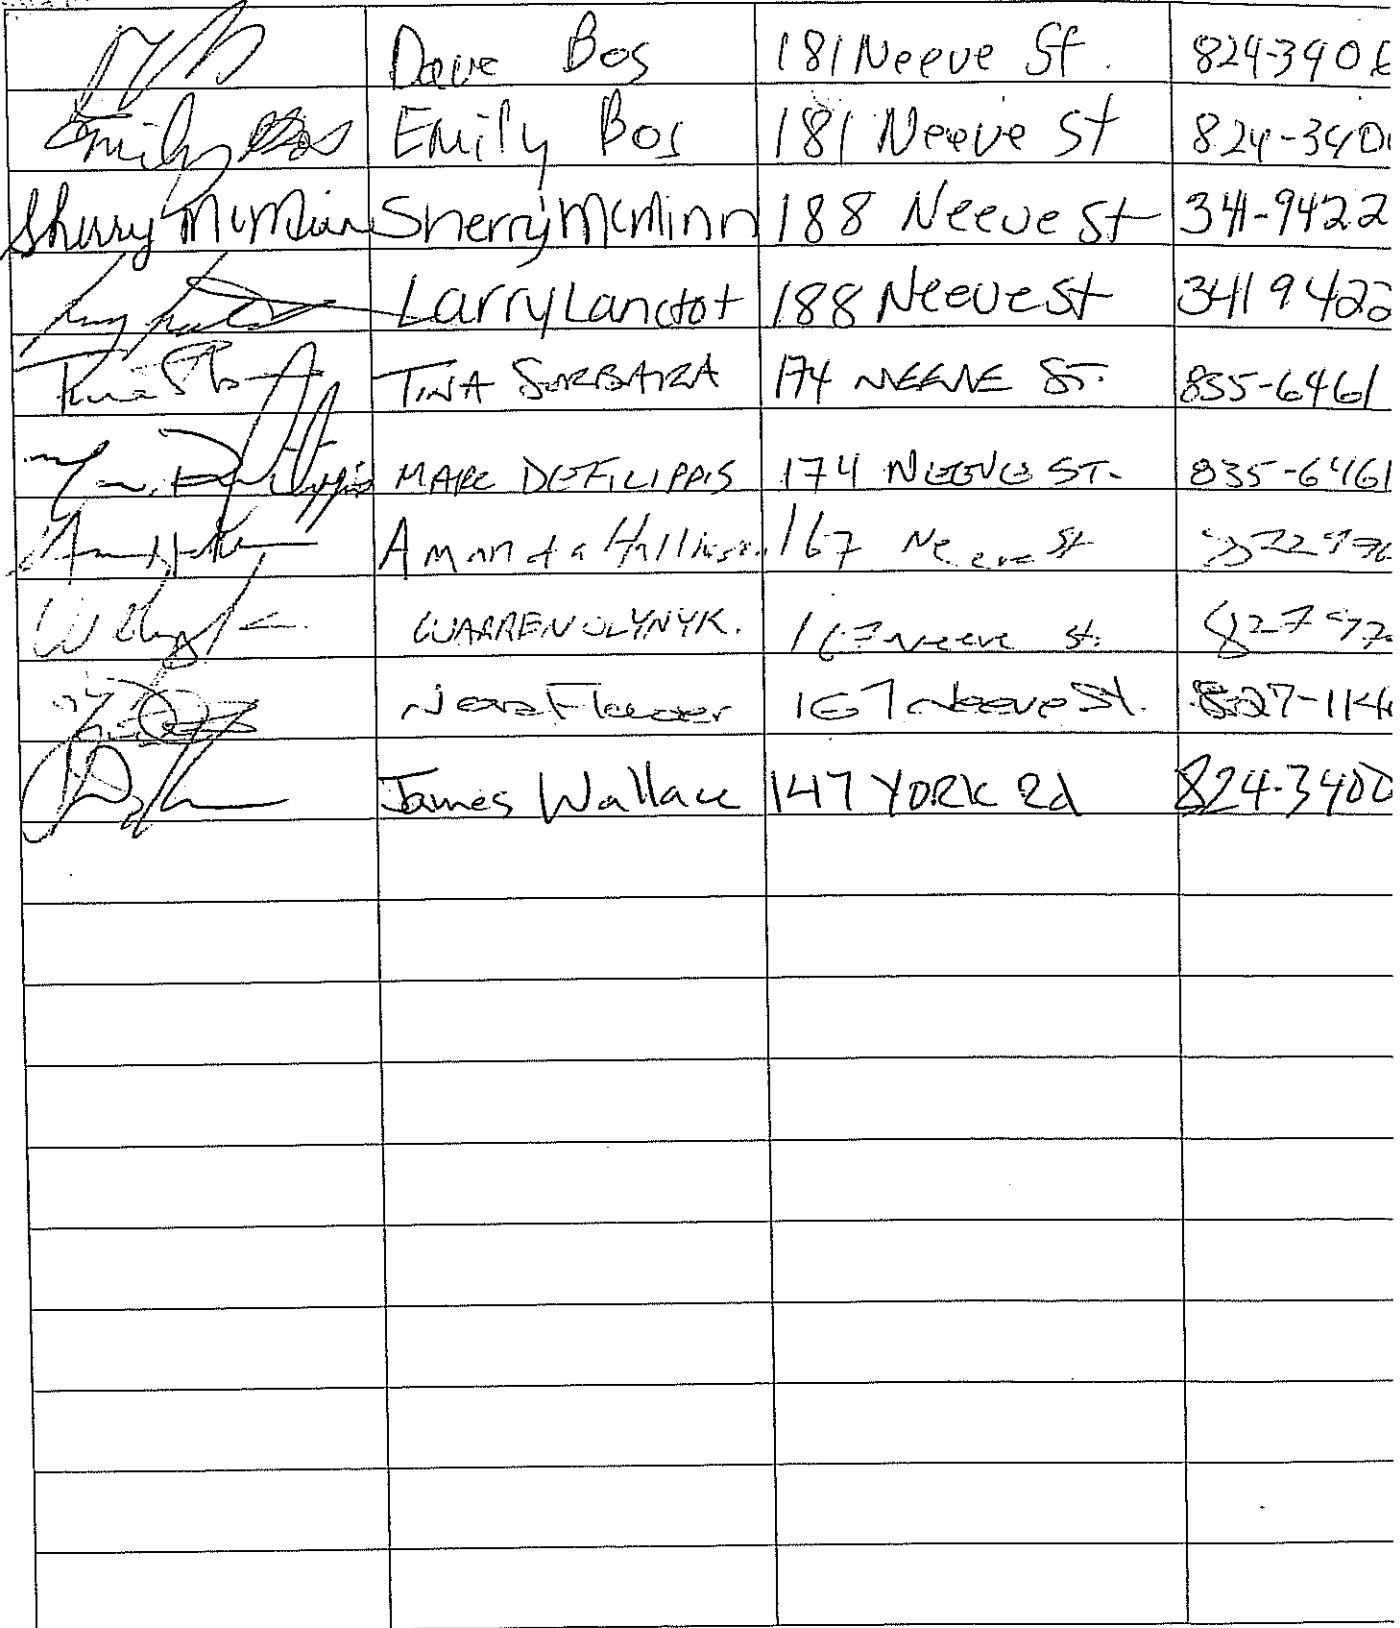 Dave Bos 181 Neeve St. 824-340
Emily Bos Emily Bos 181 Neeve St 824-340
Sherry McMinn Sherry McMinn 188 Neeve St 341-9422
Larry Lanctot 188 Neeve St 341 942
TINA SORBARA 174 NEEVE ST. 835-6461
MARC DEFILIPPIS 174 NEEVE ST. 835-6461
Amanda 167 Neeve St
WARREN OLYNYK. 167 Neeve St. 827
167 Neeve St. 827-114
James Wallace 147 YORK Rd 824-3400